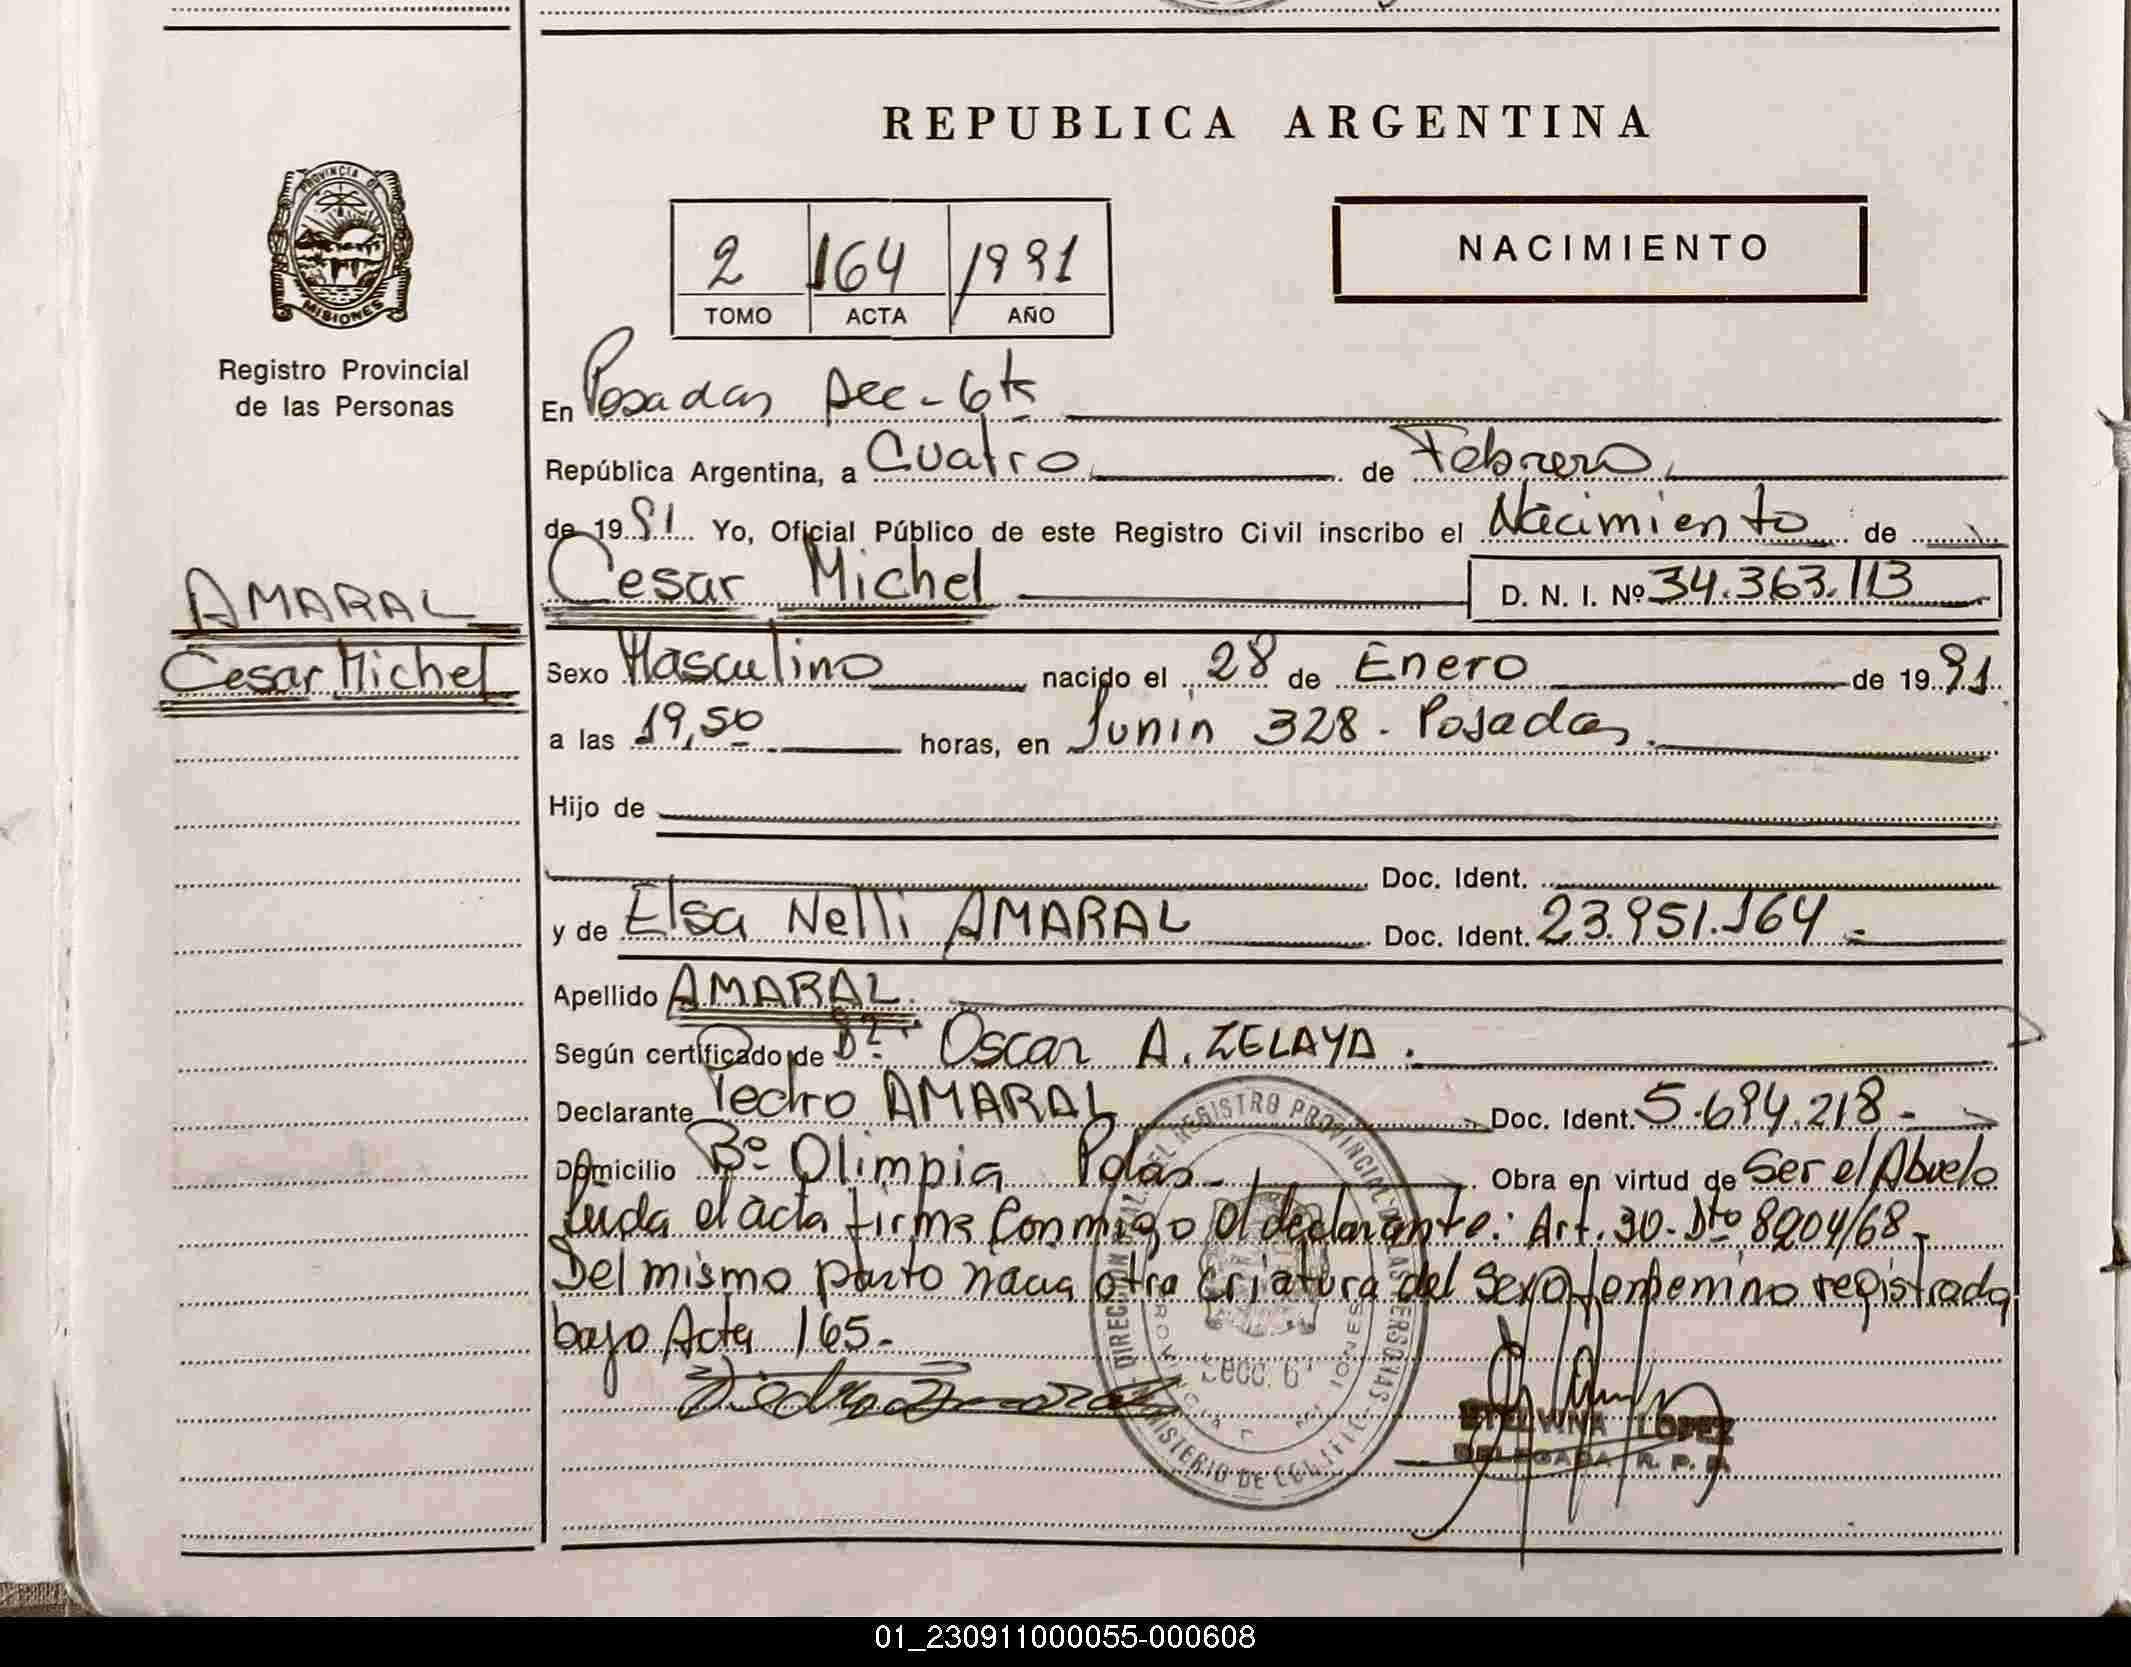 REPUBLICA ARGENTINA
PROVINCIA DE
MISIONES
Registro Provincial
de las Personas
2 164 1991
TOMO ACTA AÑO
NACIMIENTO
En Posadas Sec-6ta
República Argentina, a Cuatro de Febrero
de 1991 Yo, Oficial Público de este Registro Civil inscribo el Nacimiento de
AMARAL
Cesar Michel
Cesar Michel D. N. I. Nº 34.363.113
Sexo Masculino nacido el 28 de Enero de 1991
a las 19,50 horas, en Junin 328 - Posadas.
Hijo de
Doc. Ident.
y de Elsa Nelli AMARAL Doc. Ident. 23.951.164.-
Apellido AMARAL.
Según certificado de Dr. Oscar A. ZELAYA.
Declarante Pedro AMARAL Doc. Ident. 5.694.218-
Domicilio Bº Olimpia Pdas- Obra en virtud de Ser el Abuelo
Leida el acta firma Conmigo el declarante: Art. 30- Dto 8204/68-
Del mismo parto nacia otra criatura del Sexo femenino registrada
bajo Acta 165-
DIRECCION DEL REGISTRO PROVINCIAL DE LAS PERSONAS
MINISTERIO DE
SECC. 6ª
ETELVINA LOPEZ
DELEGADA R. P. P.
01_230911000055-000608